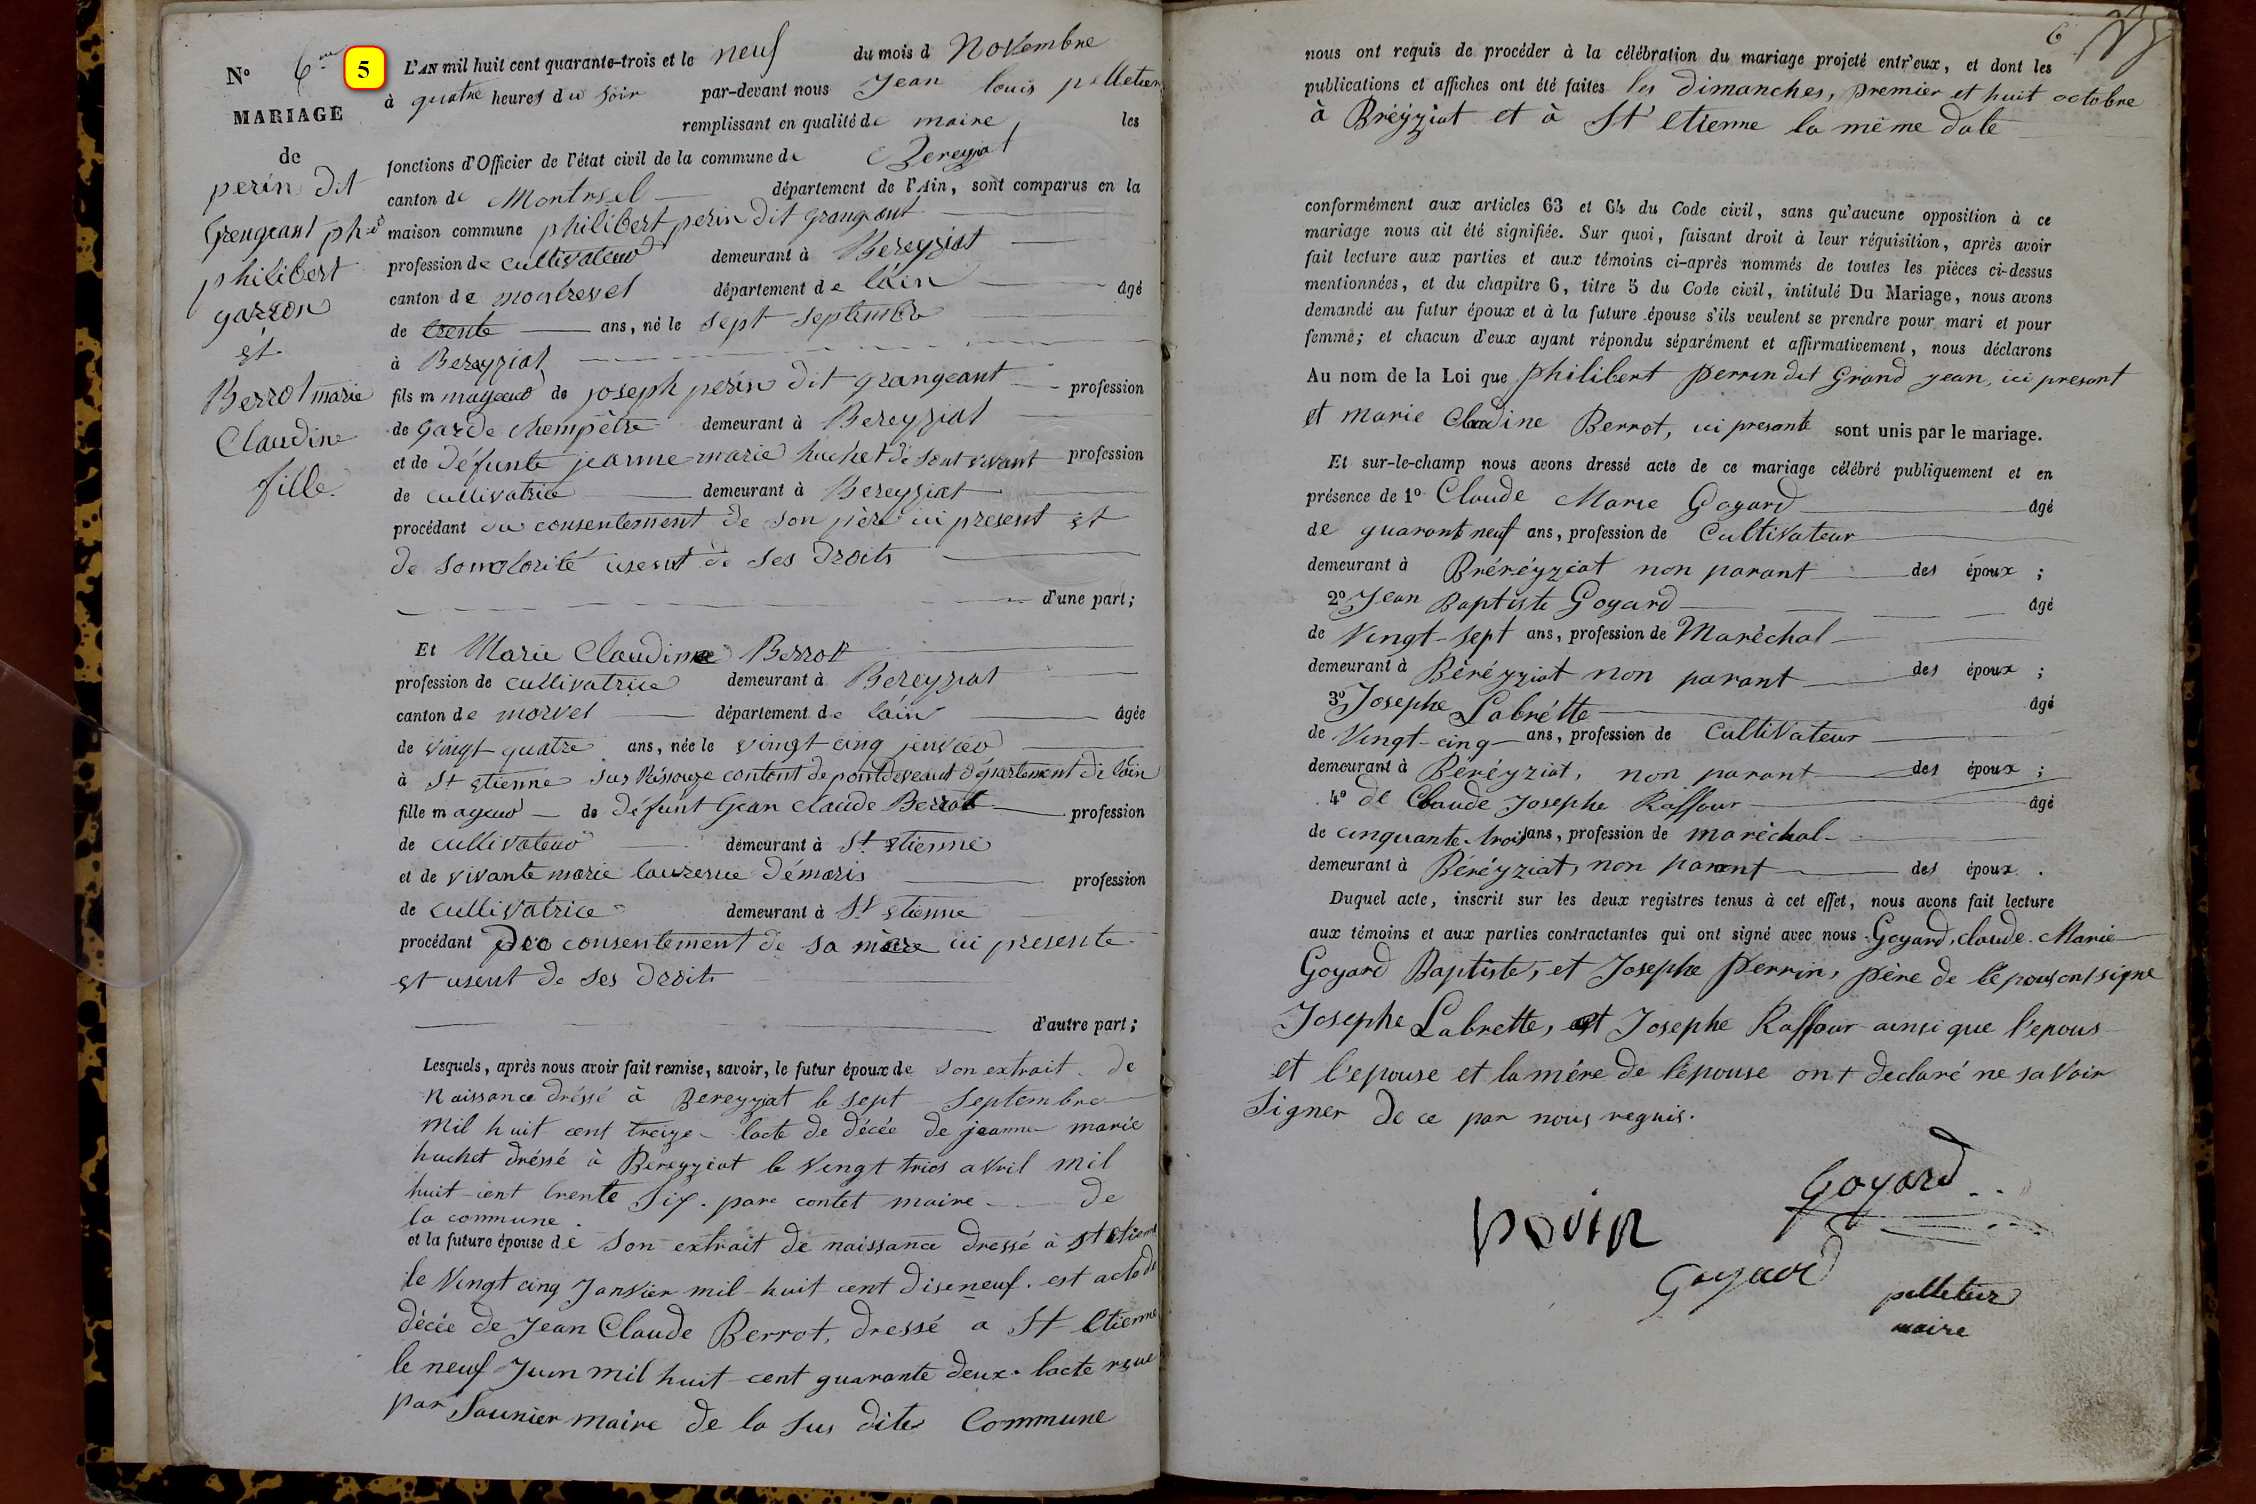 Nº 6me
5
MARIAGE
de
perin dit
Grengeant ph-d
philibert
garzon
et
Berrot marie
Claudine
fille.
L'AN mil huit cent quarante-trois et le neuf du mois d Novembre
à quatre heures du soir par-devant nous Jean louis pelletier
remplissant en qualité de maire les
fonctions d'Officier de l'état civil de la commune de Bereyziat
canton de Montrvel département de l'Ain, sont comparus en la
maison commune philibert perin dit grangeant
profession de cultivateur demeurant à Bereyziat
canton de montrevel département de l'ain âgé
de trente ans, né le sept septembre
à Bereyziat
fils m mageur de joseph perin dit grangeant profession
de garde chempêtre demeurant à Bereyziat
et de défunte jeanne marie huchet de sont vivant profession
de cultivatrice demeurant à Bereyziat
procédant du consentement de son père ici present et
de somolorité usent de ses droits
d'une part;
Et Marie Claudine Berrot
profession de cultivatrice demeurant à Bereyziat
canton de morvel département de lain âgée
de vingt quatre ans, née le vingt cinq jenvier
à St etienne sus Réssouze contont de pontdeveaux département de lain
fille m ageur de défunt Gean claude Berrot profession
de cultivateur demeurant à St etienne
et de vivante marie laurence démaris profession
de cultivatrice demeurant à St etienne
procédant du consentement de sa mère ici presente
et usent de ses droits
d'autre part;
Lesquels, après nous avoir fait remise, savoir, le futur époux de son extrait de
Naissance dréssé à Bereyziat le sept Septembre
mil huit cent treize lacte de décée de jeanne marie
huchet dréssé à Béreyziat le vingt trios avril mil
huit cent trente six. pare contet maire de
la commune.
et la future épouse de son extrait de naissance dressé à St Etienne
le Vingt cinq Janvier mil huit cent diseneuf. est acte de
décée de Jean Claude Berrot, dressé a St Etienne
le neuf Juin mil huit cent quarante deux. lacte reçue
par Saunier maire de la sus dite Commune
6
nous ont requis de procéder à la célébration du mariage projeté entr'eux, et dont les
publications et affiches ont été faites les dimanches, premier et huit octobre
à Bréyziat et à St etienne la même date
conformément aux articles 63 et 64 du Code civil, sans qu'aucune opposition à ce
mariage nous ait été signifiée. Sur quoi, faisant droit à leur réquisition, après avoir
fait lecture aux parties et aux témoins ci-après nommés de toutes les pièces ci-dessus
mentionnées, et du chapitre 6, titre 5 du Code civil, intitulé Du Mariage, nous avons
demandé au futur époux et à la future épouse s'ils veulent se prendre pour mari et pour
femme; et chacun d'eux ayant répondu séparément et affirmativement, nous déclarons
Au nom de la Loi que philibert perrin dit Grand jean, ici presant
et marie Claudine Berrot, ici presante sont unis par le mariage.
Et sur-le-champ nous avons dressé acte de ce mariage célébré publiquement et en
présence de 1º Claude Marie Goyard âgé
de quarant neuf ans, profession de Cultivateur
demeurant à Bréréyziat non parant des époux ;
2º Jean Baptiste Goyard âgé
de Vingt-sept ans, profession de Maréchal
demeurant à Béréyziat non parant des époux ;
3º Josephe Labrétte âgé
de Vingt-cinq ans, profession de Cultivateur
demeurant à Béréyziat, non parant des époux ;
4º de Claude Josephe Raffour âgé
de cinquante-trois ans, profession de maréchal
demeurant à Béréyziat, non parant des époux .
Duquel acte, inscrit sur les deux registres tenus à cet effet, nous avons fait lecture
aux témoins et aux parties contractantes qui ont signé avec nous Goyard, claude Marie
Goyard Baptiste, et Josephe perrin, père de l'épous ont signé
Josephe Labrette, et Josephe Raffour ainsi que l'epous
et l'epouse et la mère de l'épouse ont declaré ne savoir
signer de ce par nous requis.
Goyard
perin
Goyard
pelletier
maire